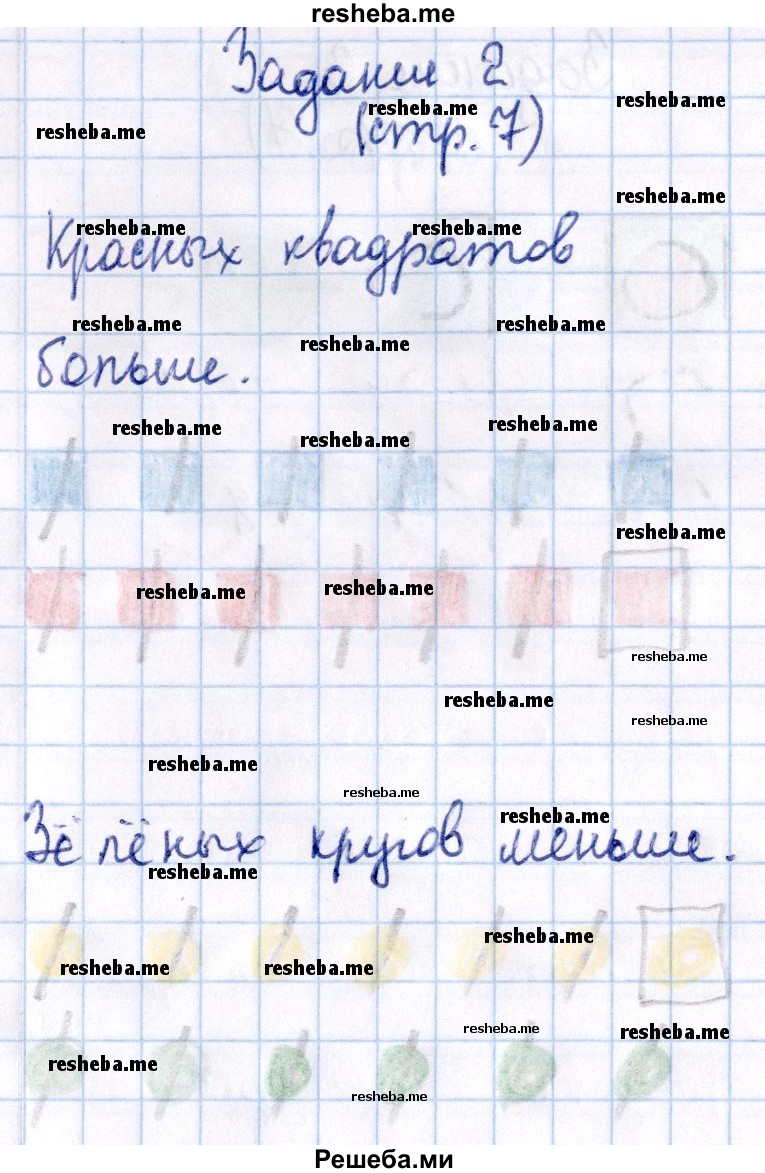 resheba.me
Задание 2
resheba.me
resheba.me
resheba.me
(стр. 7)
resheba.me
resheba.me
resheba.me
Красных квадратов
resheba.me
resheba.me
resheba.me
больше.
resheba.me
resheba.me
resheba.me
resheba.me
resheba.me
resheba.me
resheba.me
resheba.me
resheba.me
resheba.me
resheba.me
resheba.me
Зёлёных кругов меньше.
resheba.me
resheba.me
resheba.me
resheba.me
resheba.me
resheba.me
resheba.me
resheba.me
Решеба.ми